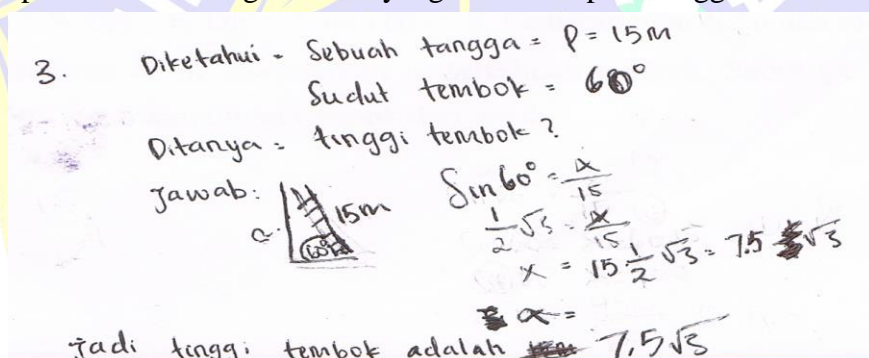 3. Diketahui - Sebuah tangga = P = 15m
Sudut tembok = 60°
Ditanya = tinggi tembok ?
Jawab:
15m
60°
Sin 60° = x/15
1/2 √3 = x/15
x = 15 1/2 √3 = 7.5 √3
x =
Jadi tinggi tembok adalah 7,5√3